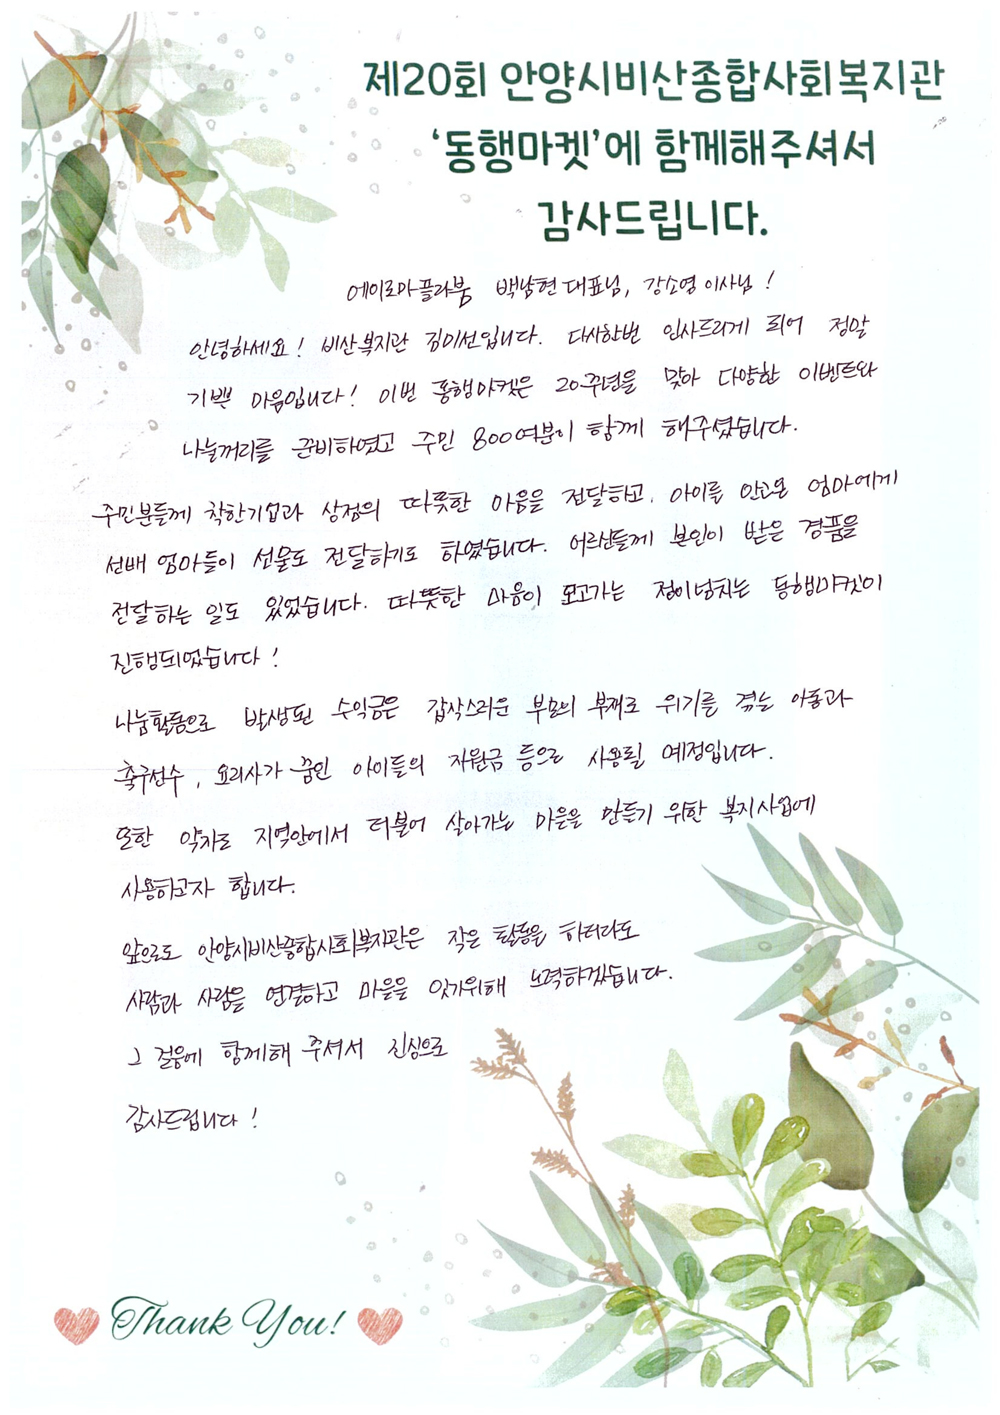 제20회 안양시비산종합사회복지관
‘동행마켓’에 함께해주셔서
감사드립니다.
에이로마플라붐 백남현 대표님, 강소영 이사님 !
안녕하세요! 비산복지관 김미선입니다. 다시한번 인사드리게 되어 정말
기쁜 마음입니다! 이번 동행마켓은 20주년을 맞아 다양한 이벤트와
나눌꺼리를 준비하였고 주민 800여분이 함께 해주셨습니다.
주민분들께 착한기업과 상점의 따뜻한 마음을 전달하고, 아이를 안고온 엄마에게
선배 엄마들이 선물도 전달하기도 하였습니다. 어르신들께 본인이 받은 경품을
전달하는 일도 있었습니다. 따뜻한 마음이 오고가는 정이넘치는 동행마켓이
진행되었습니다!
나눔활동으로 발생된 수익금은 갑작스러운 부모의 부재로 위기를 겪는 아동과
축구선수, 요리사가 꿈인 아이들의 지원금 등으로 사용될 예정입니다.
또한 약자도 지역안에서 더불어 살아가는 마을을 만들기 위한 복지사업에
사용하고자 합니다.
앞으로도 안양시비산종합사회복지관은 작은 활동을 하더라도
사람과 사람을 연결하고 마을을 잇기위해 노력하겠습니다.
그 걸음에 함께해 주셔서 진심으로
감사드립니다!
Thank You!